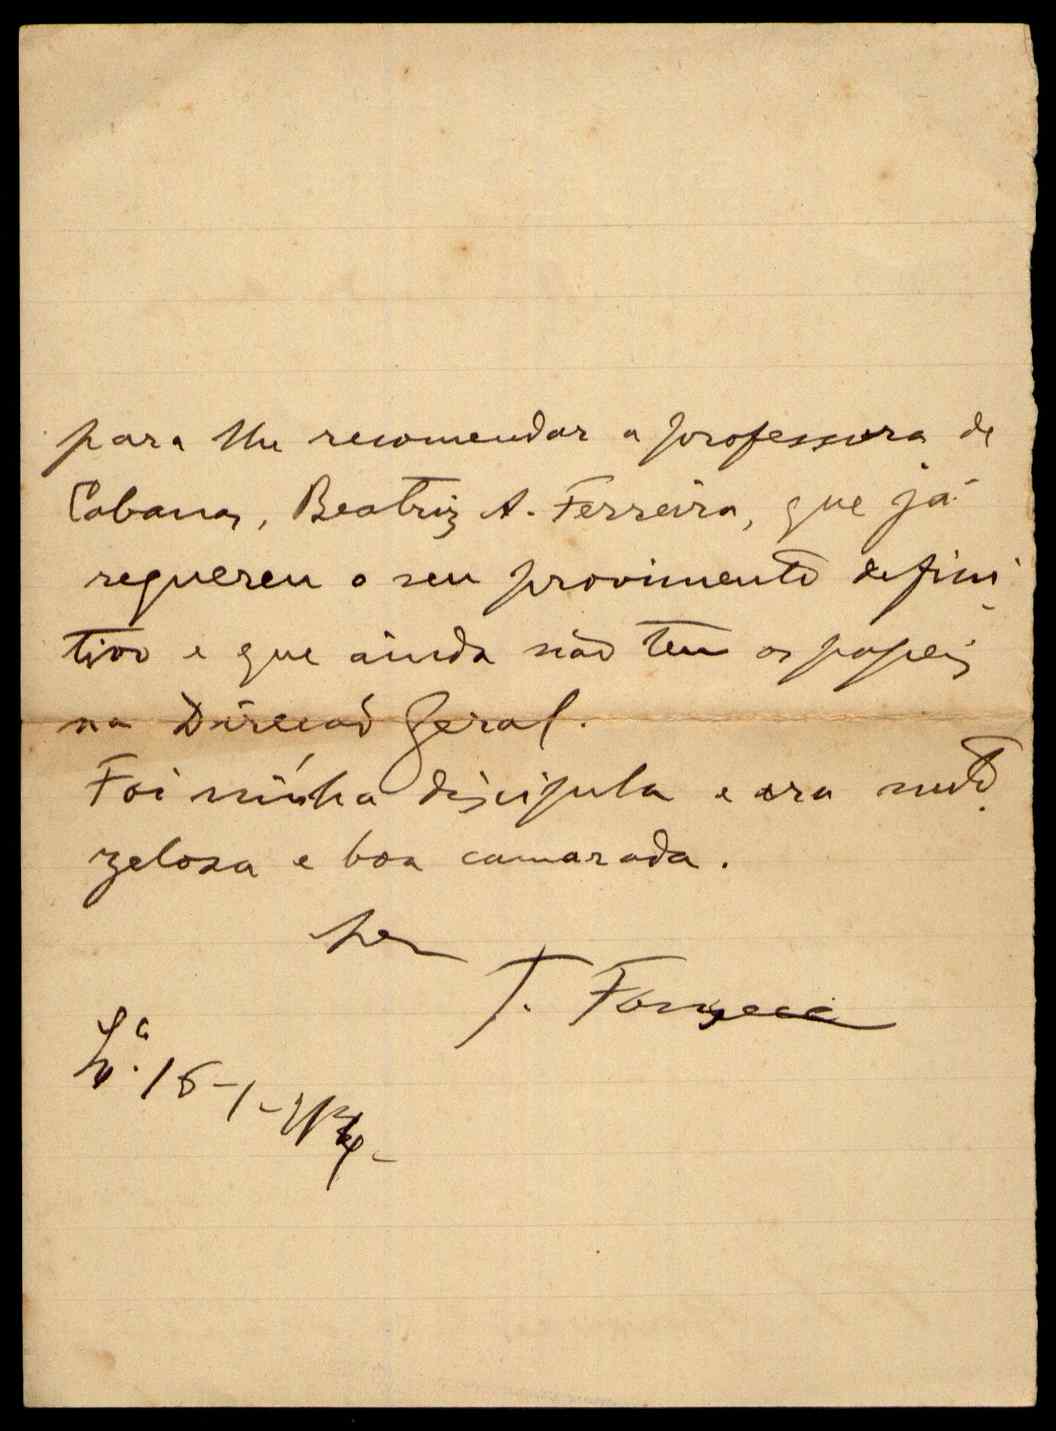 para lhe recomendar a professora de
Cabanas, Beatriz A. Ferreira, que já
requereu o seu provimento defini-
tivo e que ainda não tem os papeis
na Direcção Geral.
Foi minha discipula e era muito
zelosa e boa camarada.
T. Fonseca